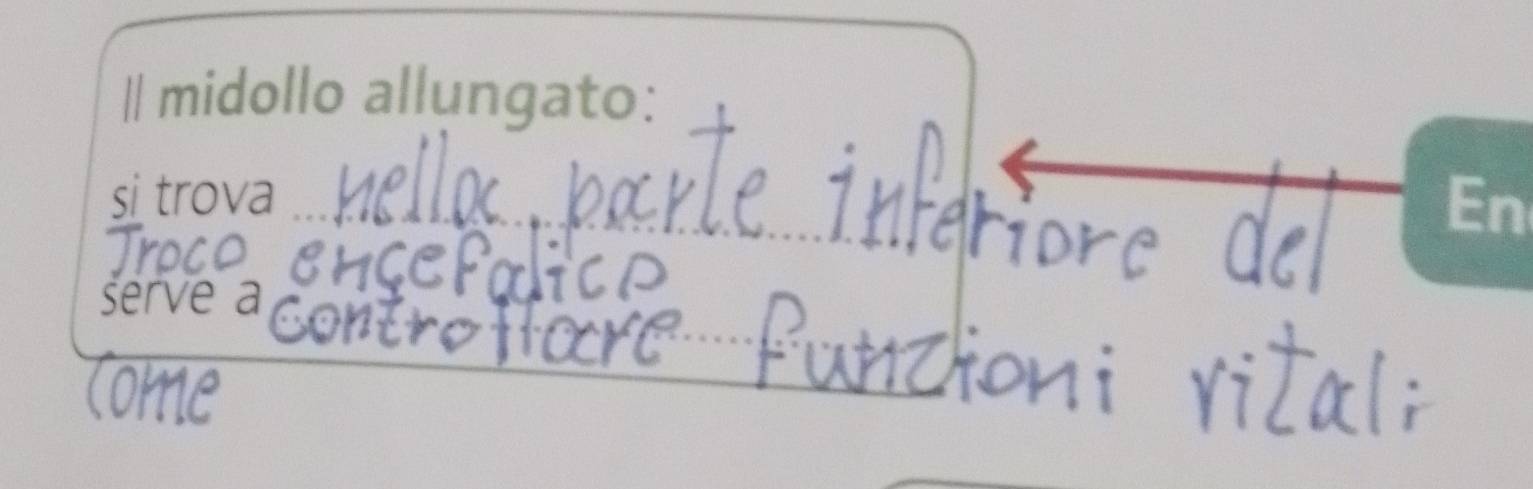 Il midollo allungato:
si trova nella parte inferiore del
Troco encefalico
serve a controllare funzioni vitali
come
En